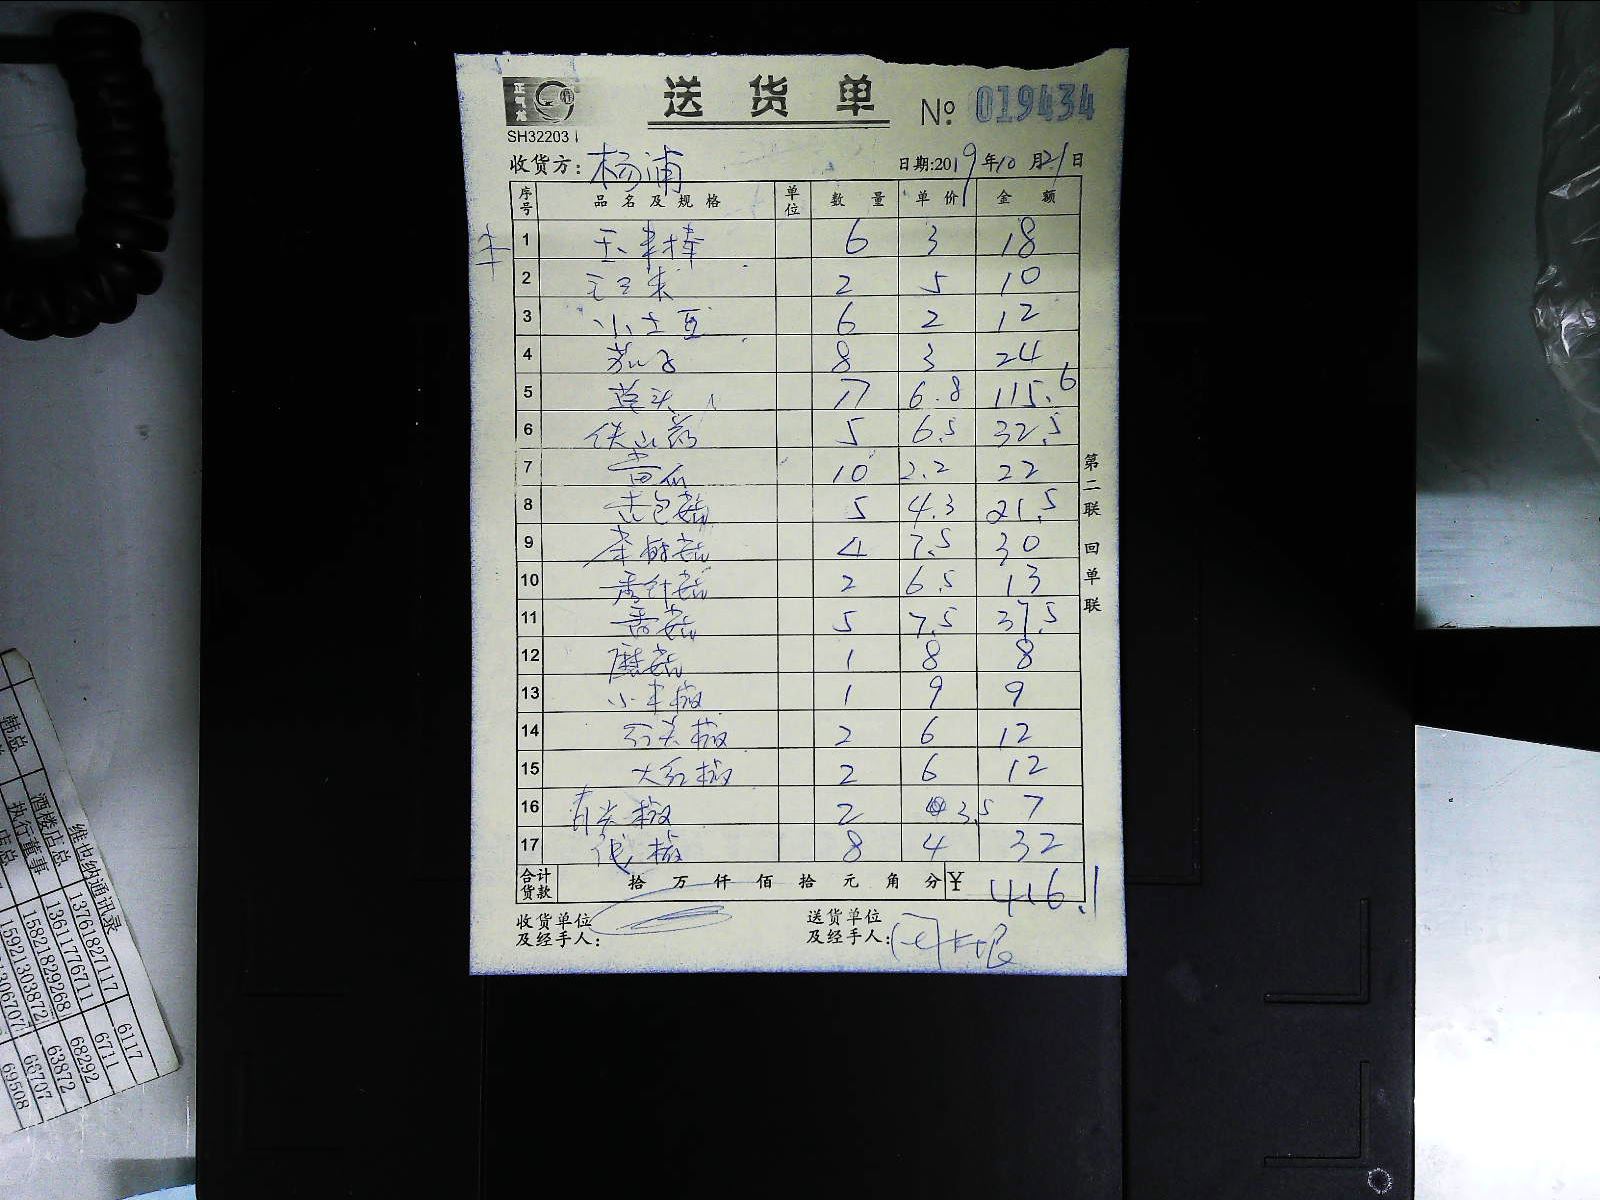 送货单
№ 019434
SH32203
收货方: 杨浦 日期:2019年10月21日
序号 品名及规格 单位 数量 单价 金额
1 玉米棒 6 3 18
2 玉米 2 5 10
3 小土豆 6 2 12
4 茄子 8 3 24
5 草头 17 6.8 115.6
6 铁山药 5 6.5 32.5
7 黄瓜 10 2.2 22
8 杏包菇 5 4.3 21.5
9 茶树菇 4 7.5 30
10 金针菇 2 6.5 13
11 香菇 5 7.5 37.5
12 蘑菇 1 8 8
13 小米椒 1 9 9
14 尖椒 2 6 12
15 大红椒 2 6 12
16 青尖椒 2 3.5 7
17 椒 8 4 32
合计货款 拾 万 仟 佰 拾 元 角 分 ¥ 416.1
收货单位及经手人:
送货单位及经手人:
第二联 回单联
维也纳通讯录
酒楼店总 13761827117 6117
执行董事 13611776711 6711
韩总
15821829268 68292
15921303872 63872
66707
69508